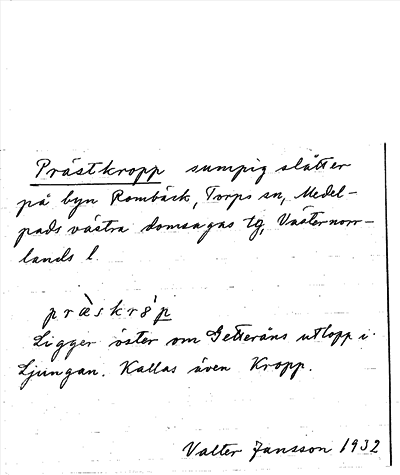 Prästkropp sumpig slåtter
på byn Rombäck, Torps sn, Medel-
pads västra domsagas tg, Västernorr-
lands l.
præ̀skrɞ́p
Ligger öster om Getteråns utlopp i
Ljungan. Kallas även Kropp.
Valter Jansson 1932